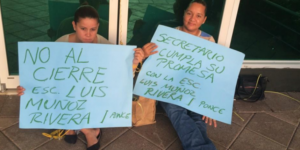 NO AL
CIERRE
ESC LUIS
MUÑOZ
RIVERA I PONCE
SECRETARIO
CUMPLA SU
PROMESA
CON LA ESC
LUIS MUÑOZ
RIVERA I PONCE